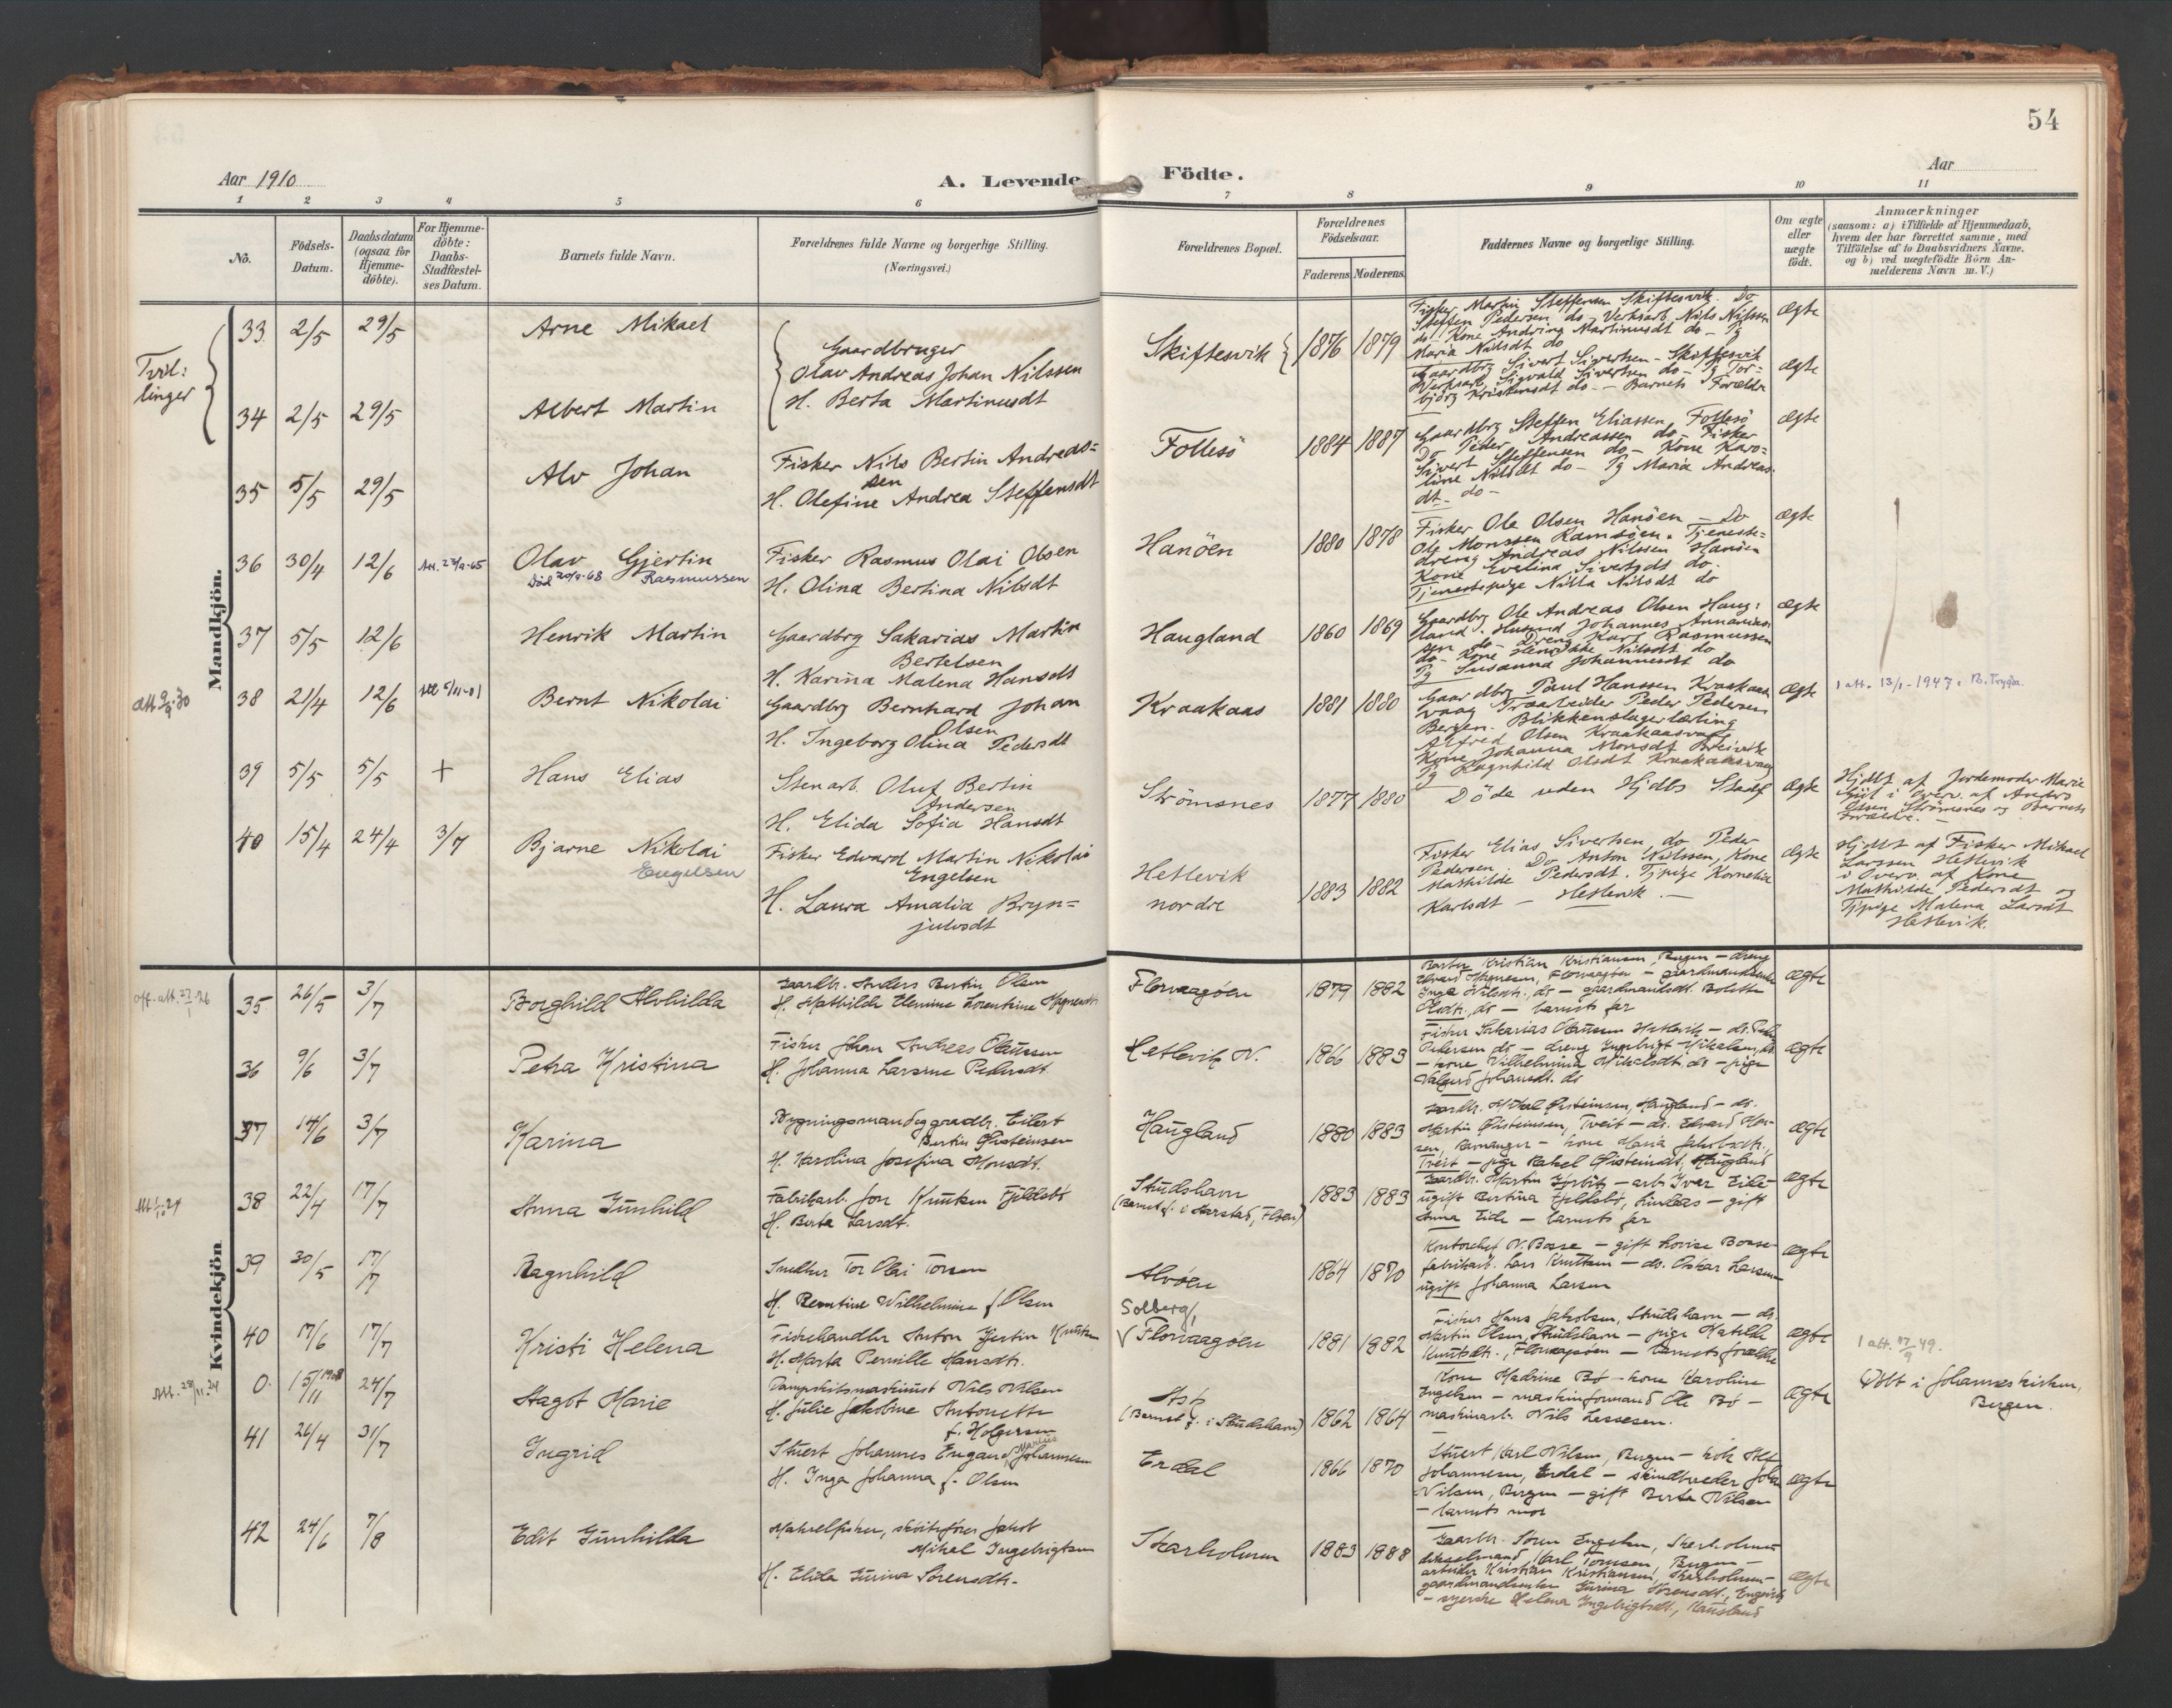 54
Aar 1910
A. Levende Födte.
Aar
1 2 3 4 5 6 7 8 9 10 11
No.
Födsels-
Datum.
Daabsdatum
(ogsaa for
Hjemme-
döbte).
For Hjemme-
döbte:
Daabs-
Stadfæstel-
ses Datum.
Barnets fulde Navn.
Forældrenes fulde Navne og borgerlige Stilling.
(Næringsvei.)
Forældrenes Bopæl.
Forældrenes
Födselsaar.
Faderens Moderens
Faddernes Navne og borgerlige Stilling.
Om ægte
eller
uægte
födt.
Anmærkninger
(saasom: a) i Tilfælde af Hjemmedaab,
hvem der har forrettet samme, med
Tilföielse af to Daabsvidners Navne,
og b) ved uægtefödte Börn An-
melderens Navn m. V.)
Mandkjön.
Tvil:
linger
33 2/5 29/5 Arne Mikael
Gaardbruger
Olav Andreas Johan Nilssen
H. Berta Martinusdt
Skiftesvik 1876 1879
Fisker Martin Steffensen Skiftesvik Do
Steffen Pedersen do - Verksarb. Nils Nilssen
do - Kone Andrina Martinusdt do - Pg
Maria Nilsdt do
ægte
34 2/5 29/5 Albert Martin
Gaardbrg Sivert Sivertsen - Skiftesvik
Verksarb. Sigvald Sivertsen do - Pg Tor-
björg Kristensdt do - Barnets Forældre
ægte
35 5/5 29/5 Alv Johan
Fisker Nils Bertin Andreas-
sen
H. Olefine Andrea Steffensdt
Follesö 1884 1887
Gaardbrg Steffen Eliassen Follesö
Do Peder Andreassen do - Fisker
Sivert Steffensen do - Kone Karo-
line Nilsdt do - Pg Maria Andreas
dt - do -
ægte
36 30/4 12/6 Olav Gjertin
Rasmussen
Fisker Rasmus Olai Olsen
H. Olina Bertina Nilsdt
Hanöen 1880 1878
Fisker Ole Olsen Hanöen - Do
Ole Monssen Ramsöen. Tjeneste-
dreng Andreas Nilssen Hanöen
Kone Evelina Sivertsdt do.
Tjenestepige Nilla Nilsdt do
ægte
37 5/5 12/6 Henrik Martin
Gaardbrg Sakarias Martin
Bertelsen
H. Karina Malena Hansdt
Haugland 1860 1869
Gaardbrg Ole Andreas Olsen Haug:
land. Husmd Johannes Annanias-
sen do - Dreng Karl Rasmussen
do - Kone Henrikke Nilsdt do
Pg Susanna Johannesdt do
ægte
38 21/4 12/6 Bernt Nikolai
Gaardbrg Bernhard Johan
Olsen
H. Ingeborg Olina Pedersdt
Kraakaas 1881 1880
Gaardbrg Paul Hanssen Kraakaas
vaag Træarbeider Peder Pedersen
Bergen. Blikkenslagerlærling
Alfred Olsen Kraakaasvaag
Kone Johanna Monsdt Breivik
Pg Ragnhild Olsdt Kraakaasvaag
ægte
1 att. 13/1-1947. B. Trygda.
39 5/5 5/5 + Hans Elias
Stenarb. Oluf Bertin
Andersen
H. Elida Sofia Hansdt
Strömsnes 1877 1880
Döde uden Hjdbs Stadf
ægte
Hjdbt af Jordemoder Marie
i Overv. af Anders
Olsen Strömsnes og Barnets
Forældre. -
40 15/4 24/4 3/7 Bjarne Nikolai
Engelsen
Fisker Edvard Martin Nikolai
Engelsen
H. Laura Amalia Bryn=
julvsdt
Hetlevik
nordre
1883 1882
Fisker Elias Sivertsen, do Peder
Pedersen Do Anton Nilssen, Kone
Mathilde Pedersdt. Tjpige Kornelia
Karlsdt - Hetlevik. -
ægte
Hjdbt af Fisker Mikael
Larssen Hetlevik
i Overv. af Kone
Mathilde Pedersdt og
Tjpige Malena Larsdt
Hetlevik.
Kvindekjön
35 26/5 3/7 Borghild Alvhilda
Gaardbr. Anders Bertin Olsen
Florvaagöen 1879 1882
Barber Kristian Kristiansen, Bergen - dreng
- barnets far
ægte
36 9/6 3/7 Petra Kristina
Fisker Johan Andreas Olaussen
H. Johanna Larsine Pedersdt
Hetlevik N. 1866 1883
Fisker Sakarias Olaussen Hetlevik - do. Peder
Pedersen do - dreng Ingebrigt Mikalsen, do
- kone Vilhelmina Mikalsdt, do - pige
Valgerd Johansdt. do
ægte
37 14/6 3/7 Karina
Bygningsmand og gaardbr. Eilert
Bertin Øisteinsen
H. Karolina Josefina Monsdt.
Haugland 1880 1883
Gardbr. Mikal Øisteinsen, Haugland - do.
Martin Øisteinsen, Tveit - do. Edvard Mon-
sen, Ramanger - kone Maria Jakobsdt,
Tveit - pige Rakel Øisteindt, Haugland
ægte
38 22/4 17/7 Anna Gunhild
Fabrikarb. Jon Knutsen Fjeldsbö
H. Berta Larsdt.
Studshavn
(Barnet f. i Harstad, Flöen)
1883 1883
ugift Bertina Fjeldsbö, Lindeas - gift
Anna Eide - barnets far
ægte
39 30/5 17/7 Ragnhild
Smedker Tor Olai Torsen
H. Berntine Wilhelmine f. Olsen
Alvöen 1864 1870
Kontorchef N. Basse - gift Lovise Basse
fabrikarb. Lars Knutsen - do. Oskar Larsen -
ugift Johanna Larsen
ægte
40 17/6 17/7 Kristi Helena
Fiskehandler Anton Gjertin Knutsen
H. Marta Pernille Hansdt.
Solberg,
Florvaagöen
1881 1882
Fisker Hans Jakobsen, Studshavn - do.
Martin Olsen, Studshavn - pige Matilde
Knutsdt., Florvaagöen - barnets forældre
ægte
1 att. 17/9 49.
0. 15/11 1908 24/7 Hagot Marie
Dampskibsmaskinist Nils Nilsen
H. Julie Jakobine Antonette
f. Holgersen
Ask
(Barnet f. i Studshavn)
1862 1864
Kone Madrine Bö - kone Karoline
Engelsen - maskinformand Ole Bö -
maskinarb. Nils Lassesen.
ægte
Döbt i Johanneskirken,
Bergen.
41 26/4 31/7 Ingrid
Stuert Johannes Engang Marius Johannesen
H. Inga Johanna f. Olsen
Erdal 1866 1870
Stuert Karl Nilsen, Bergen - kok Alf
Johannesen, Erdal - skindbreder Johan
Nilsen, Bergen - gift Berta Nilsen
- barnets mor
ægte
42 24/6 7/8 Edit Gunhilda
Makrelfisker, sköitefører Jakob
Mikal Ingebrigtsen
H. Elida Gurina Sorensdt.
Skarholmen 1883 1888
Gaardbr. Sören Engelsen, Skarholmen
Karl Tomsen, Bergen -
arbeider Kristian Kristiansen, Skarholmen -
- syerske Helena Ingebrigtsdt, Hausland
ægte